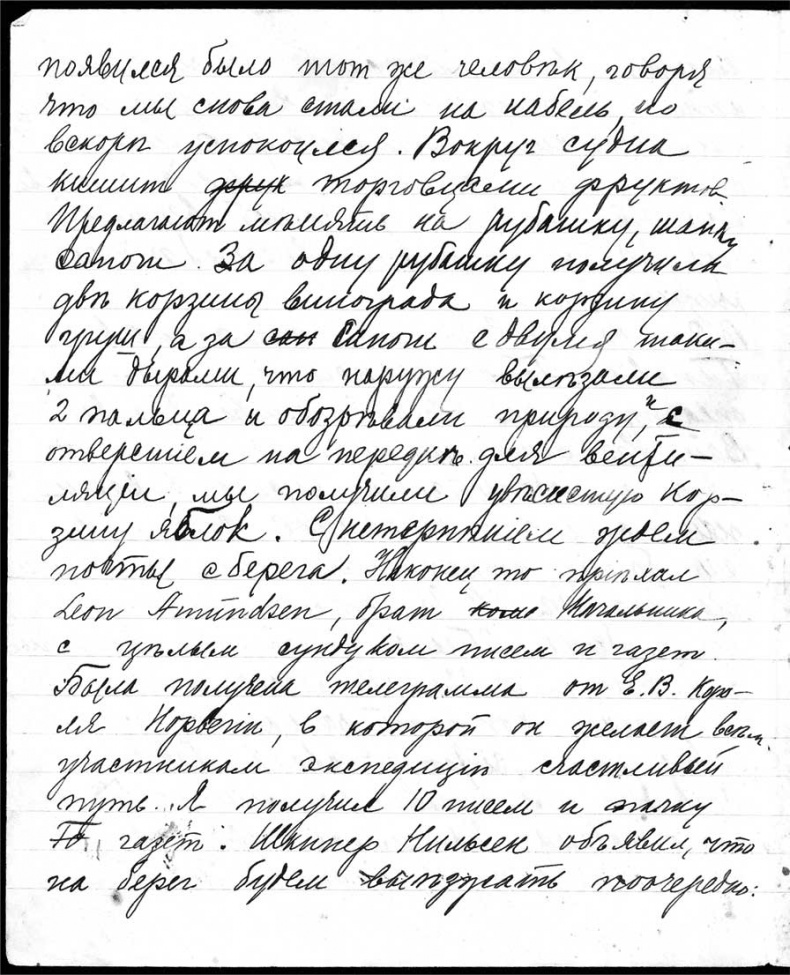 появился было тот же человѣк, говоря
что мы снова стали на кабель, но
вскорѣ успокоился. Вокруг судна
кишит фрук торговцами фруктов
Предлагают мѣнять на рубашку, шапку
сапоги. За одну рубашку получила
двѣ корзины винограда и корзину
груш, а за сап сапоги с двумя таки-
ми дырами, что наружу вылѣзали
2 пальца и обозрѣвали природу, и с
отверстіем на передкѣ для венти-
ляціи, мы получили увѣсистую кор-
зину яблок. С нетерпѣніем ждем
почты с берега. Наконец то пріѣхал
Leon Amundsen, брат Начальника,
с цѣлым сундуком писем и газет.
Была получена телеграмма от Е.В. Коро-
ля Норвегіи, в которой он желает всѣм
участникам экспедиціи счастливый
путь. Я получил 10 писем и пачку
газет. Шкипер Нильсен объявил, что
на берег будем выѣзжать поочередно: